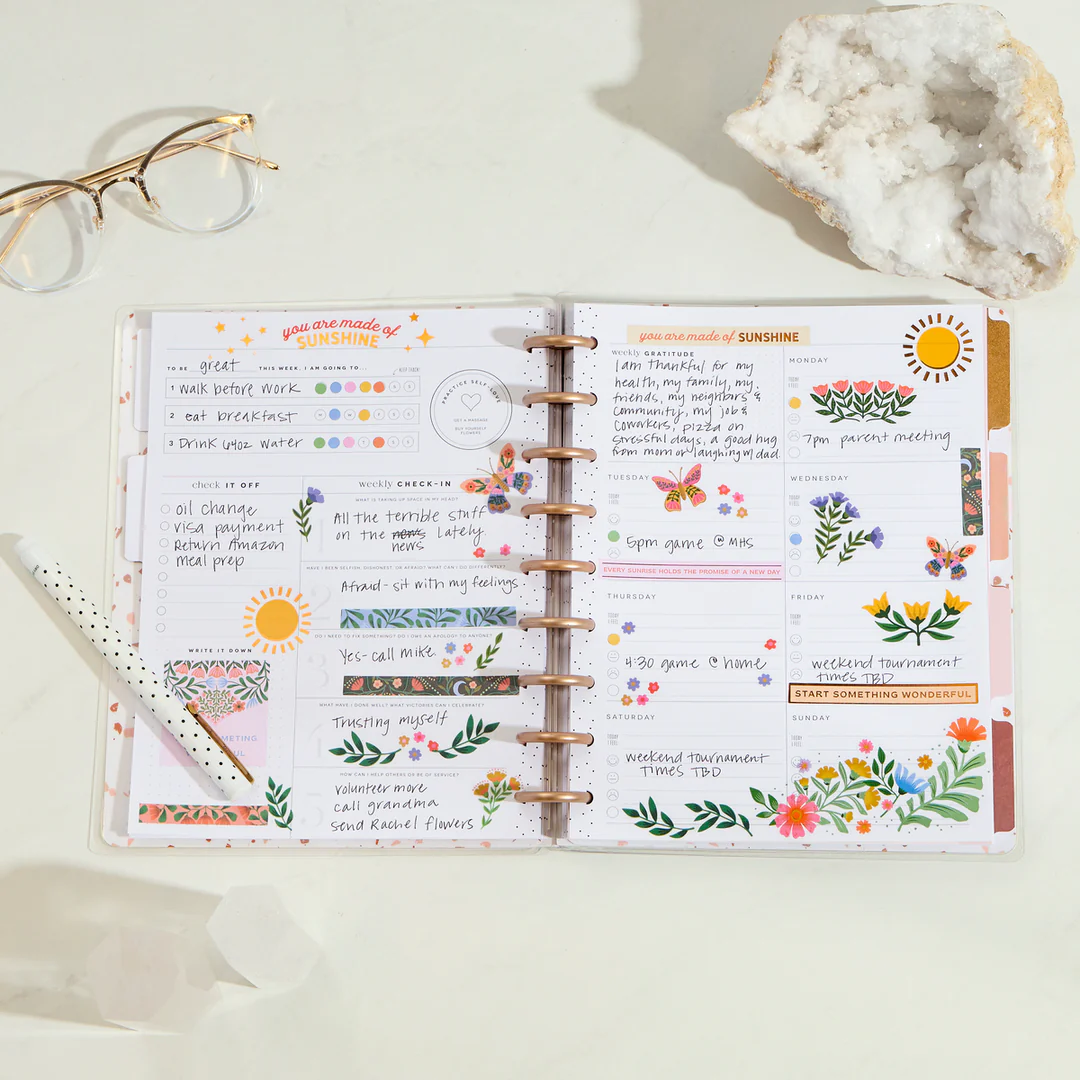 you are made of
SUNSHINE
TO BE great THIS WEEK, I AM GOING TO...
KEEP TRACK!
1 walk before work
2 eat breakfast
3 Drink 64oz water
PRACTICE SELF-LOVE
GET A MASSAGE
BUY YOURSELF
FLOWERS
check IT OFF
oil change
visa payment
Return Amazon
meal prep
WRITE IT DOWN
weekly CHECK-IN
WHAT IS TAKING UP SPACE IN MY HEAD?
All the terrible stuff
on the news lately
news
HAVE I BEEN SELFISH, DISHONEST, OR AFRAID? WHAT CAN I DO DIFFERENTLY?
Afraid - sit with my feelings
DO I NEED TO FIX SOMETHING? DO I OWE AN APOLOGY TO ANYONE?
3
Yes- call mike
WHAT HAVE I DONE WELL? WHAT VICTORIES CAN I CELEBRATE?
Trusting myself
HOW CAN I HELP OTHERS OR BE OF SERVICE?
5
volunteer more
call grandma
send Rachel flowers
you are made of SUNSHINE
weekly GRATITUDE
I am thankful for my
health, my family, my
friends, my neighbors &
community, my job &
coworkers, pizza on
stressful days, a good hug
from mom or laughing w/ dad.
MONDAY
TODAY
I FEEL
7pm parent meeting
TUESDAY
TODAY
I FEEL
5pm game @ MHS
EVERY SUNRISE HOLDS THE PROMISE OF A NEW DAY
WEDNESDAY
TODAY
I FEEL
THURSDAY
TODAY
I FEEL
4:30 game @ home
FRIDAY
TODAY
I FEEL
weekend tournament
times TBD
START SOMETHING WONDERFUL
SATURDAY
TODAY
I FEEL
weekend tournament
times TBD
SUNDAY
TODAY
I FEEL